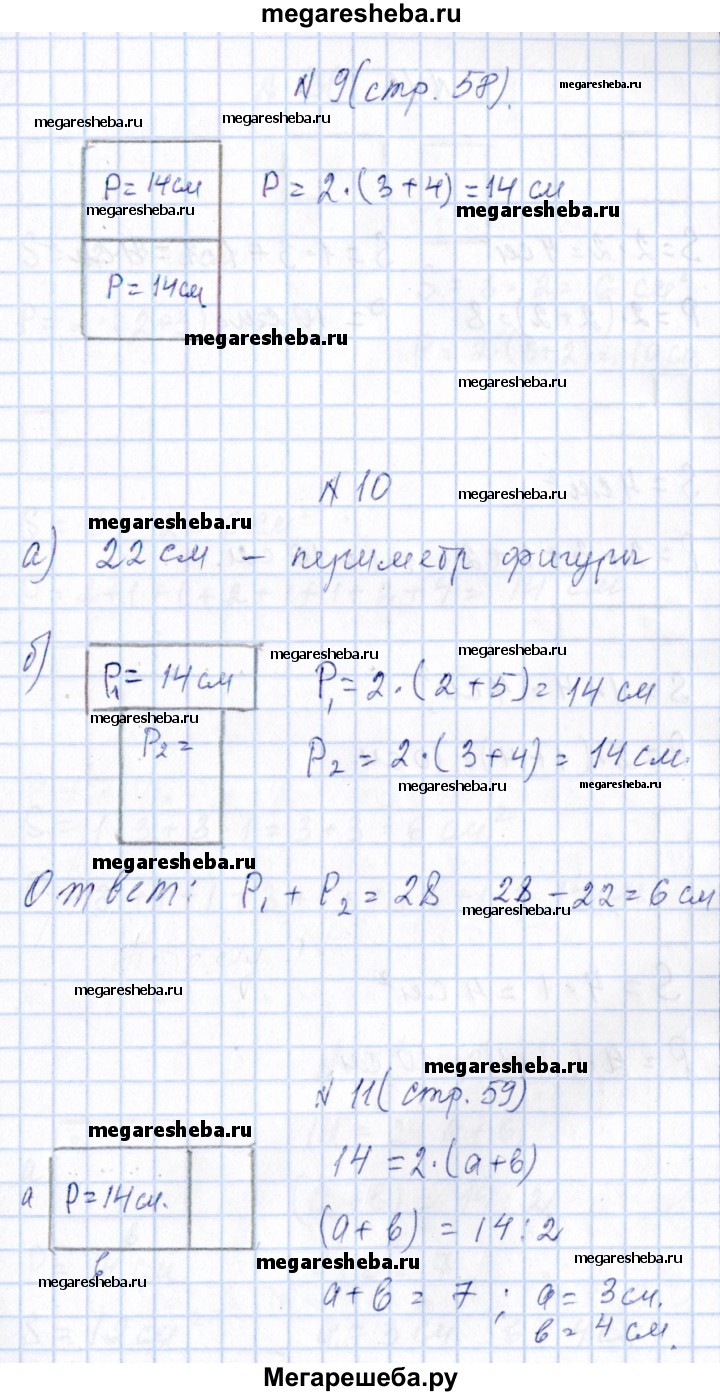 megaresheba.ru
N 9 (стр. 58).
megaresheba.ru
megaresheba.ru
megaresheba.ru
P = 14 см
P = 2 · (3 + 4) = 14 см
megaresheba.ru
megaresheba.ru
P = 14 см
megaresheba.ru
megaresheba.ru
N 10
megaresheba.ru
megaresheba.ru
а) 22 см – периметр фигуры
б)
megaresheba.ru
megaresheba.ru
P₁ = 14 см
P₁ = 2 · (2 + 5) = 14 см
megaresheba.ru
P₂ =
P₂ = 2 · (3 + 4) = 14 см.
megaresheba.ru
megaresheba.ru
megaresheba.ru
Ответ: P₁ + P₂ = 28 28 – 22 = 6 см
megaresheba.ru
megaresheba.ru
megaresheba.ru
N 11 (стр. 59)
megaresheba.ru
14 = 2 · (а + в)
а
P = 14 см.
(а + в) = 14 : 2
в
megaresheba.ru
megaresheba.ru
megaresheba.ru
а + в = 7 ; а = 3 см.
в = 4 см.
Мегарешеба.ру